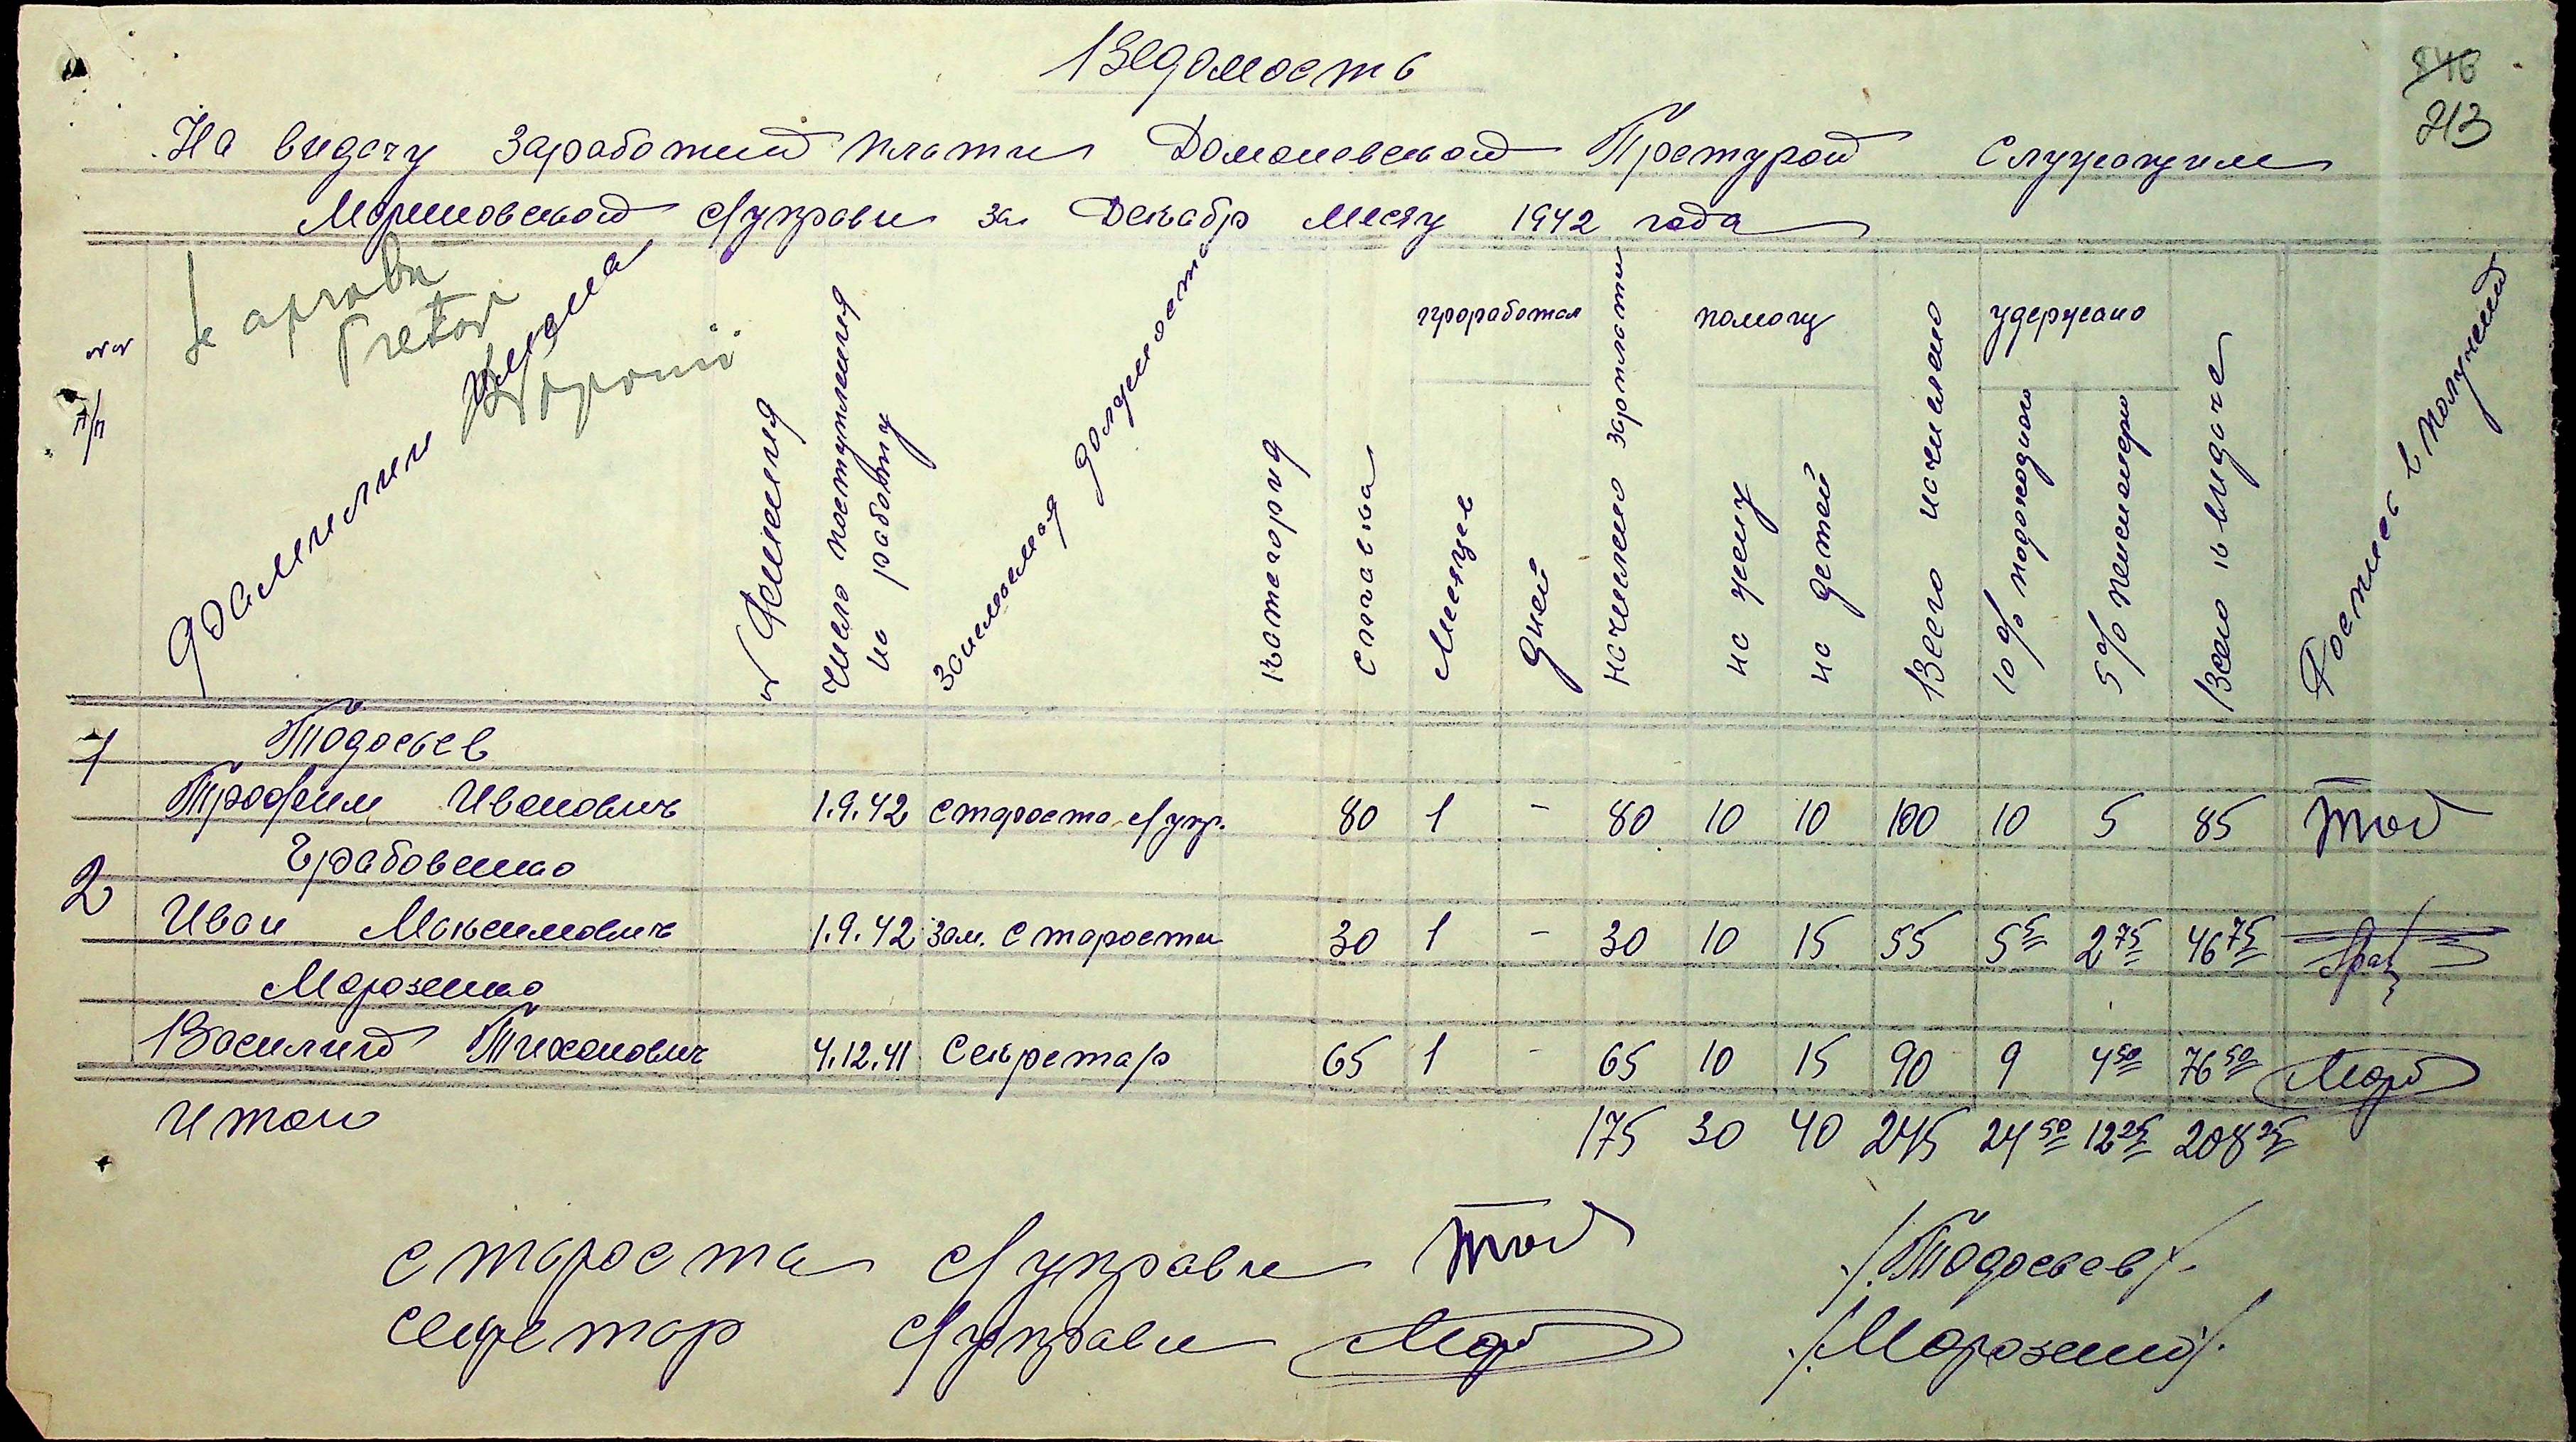 Ведомость
846
213
На видачу Заработний платы Домоневской Претурой Служащим
Мориновской с/управи за Декабр месяц 1942 года
Se aprobă
Pretor
№№
п/п
Фамилия Имена
№ Фамилия
Число поступления
на работу
Занимаемая должность
категория
ставка
проработал
Месяцев
Дней
Начислено зарплати
помощ
на жену
на детей
Всего начислено
удержано
10% подоходного
5% пенсионеро
Всего к видаче
Роспись в получений
1 Тодосьев
Трофим Иванович 1.9.42 староста с/упр. 80 1 - 80 10 10 100 10 5 85 Тод
2 Грабовенко
Иван Максимович 1.9.42 зам. старости 30 1 - 30 10 15 55 5 5 2 75 46 75 Граб
Морозенко
Василий Тихонович 4.12.41 Секретар 65 1 - 65 10 15 90 9 4 50 76 50 Мороз
Итого 175 30 40 245 24 50 12 25 208 25
Староста с/управи Тод /Тодосьев/
Секретар с/управи Мороз /Морозенко/